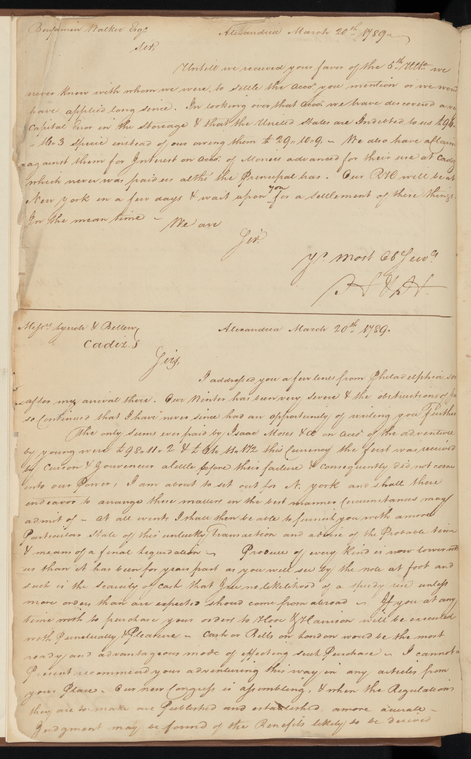 Benjamin Walker Esqr Alexandria March 20th 1789
Sir
Untill we received your favr of the 5th Ulto we
never knew with whom we were to settle the accot you mention or we
have applied long since. In looking over that accot we have discovered a
Capital Error in the Storage & that the United States are Indebted to us
Specie instead of our owing them £29..10..9 — We also have a Claim
against them for Interest on accot of Monies advanced for their use at Cadiz
which never was paid us altho' the Principal has. Our R H will be at
New York in a few days & wait upon you for a settlement of these things
In the mean time — We are
Sir
Yr most Ob Servts
H & H

Messrs Lynch & Bellew Alexandria March 20th 1789.
Cadiz
Sirs,
I addressed you a few lines from Philadelphia
after my arrival there. Our Winter has been very severe & the obstructions
so Continued that I have never since had an oppertunity of writing you Further
The only sums ever paid by Isaac Moses & Co on accot of the adventure
by young were this Currency the first was received
by Curson & Gouverneur a little before their failure & consequently did not come
into our Power; I am about to set out for N. york and shall there
endeavor to arrange these matters in the best manner Circumstances may
admit of — at all events I shall then be able to furnish you with a more
Particular State of this unlucky Transaction and advise of the Probable time
& means of a final liquidation — Produce of every Kind is now lower with
us than it has been for years past as you will see by the note at foot and
such is the Scarcity of Cash that I see no likelihood of a speedy rise unless
more orders than are expected should come from abroad — If you at any
time wish to purchase your orders to Hooe & Harrison will be executed
with Punctuality & Pleasure — Cash or Bills on London would be the most
ready and advantageous mode of effecting such Purchase — I cannot at
Present recommend your adventuring this way in any articles from
your Place — Our new Congress is assembling, & when the Regulations
they are to make are Published and established, a more accurate
Judgment may be formed of the Benefits likely to be derived